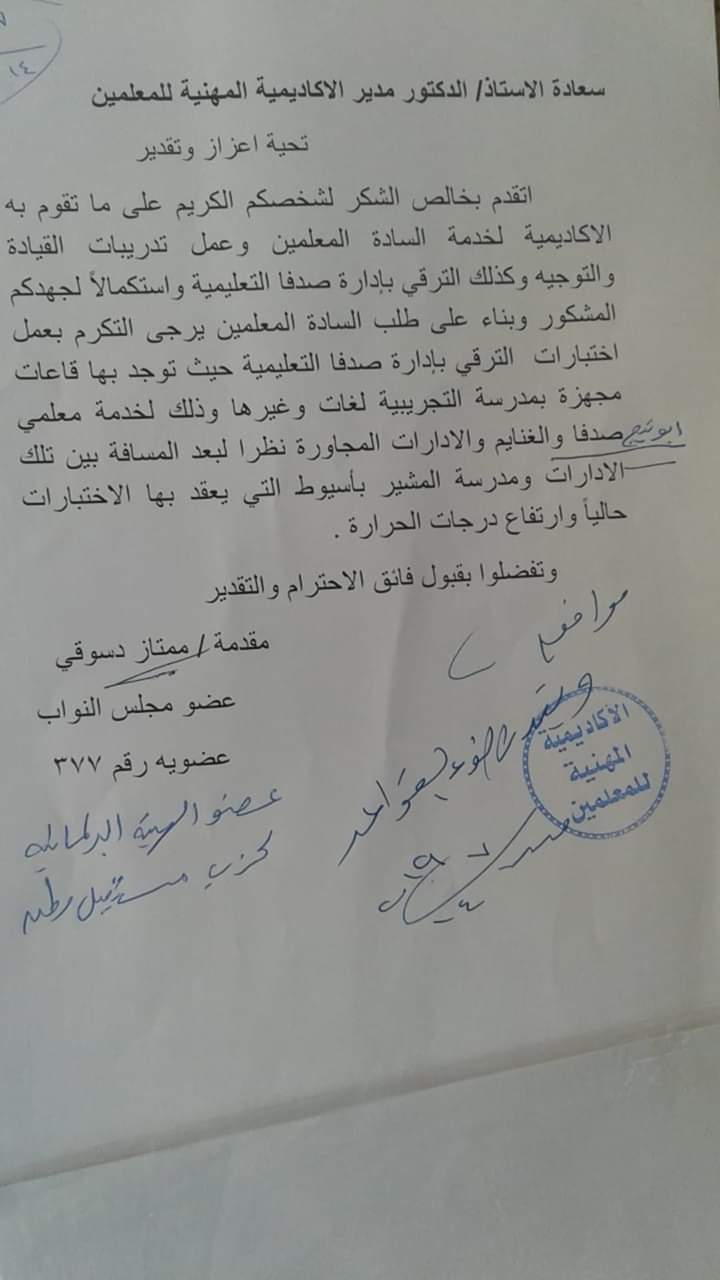 ١٤
سعادة الاستاذ/ الدكتور مدير الاكاديمية المهنية للمعلمين
تحية اعزاز وتقدير
اتقدم بخالص الشكر لشخصكم الكريم على ما تقوم به
الاكاديمية لخدمة السادة المعلمين وعمل تدريبات القيادة
والتوجيه وكذلك الترقي بإدارة صدفا التعليمية واستكمالاً لجهدكم
المشكور وبناء على طلب السادة المعلمين يرجى التكرم بعمل
اختبارات الترقي بإدارة صدفا التعليمية حيث توجد بها قاعات
مجهزة بمدرسة التجريبية لغات وغيرها وذلك لخدمة معلمي
ابوتيج صدفا والغنايم والادارات المجاورة نظرا لبعد المسافة بين تلك
الادارات ومدرسة المشير بأسيوط التي يعقد بها الاختبارات
حالياً وارتفاع درجات الحرارة .
وتفضلوا بقبول فائق الاحترام والتقدير
مقدمة / ممتاز دسوقي
عضو مجلس النواب
عضويه رقم ٣٧٧
عضو الهيئة البرلمانية
لحزب مستقبل وطن
موافق
الأكاديمية
المهنية
للمعلمين